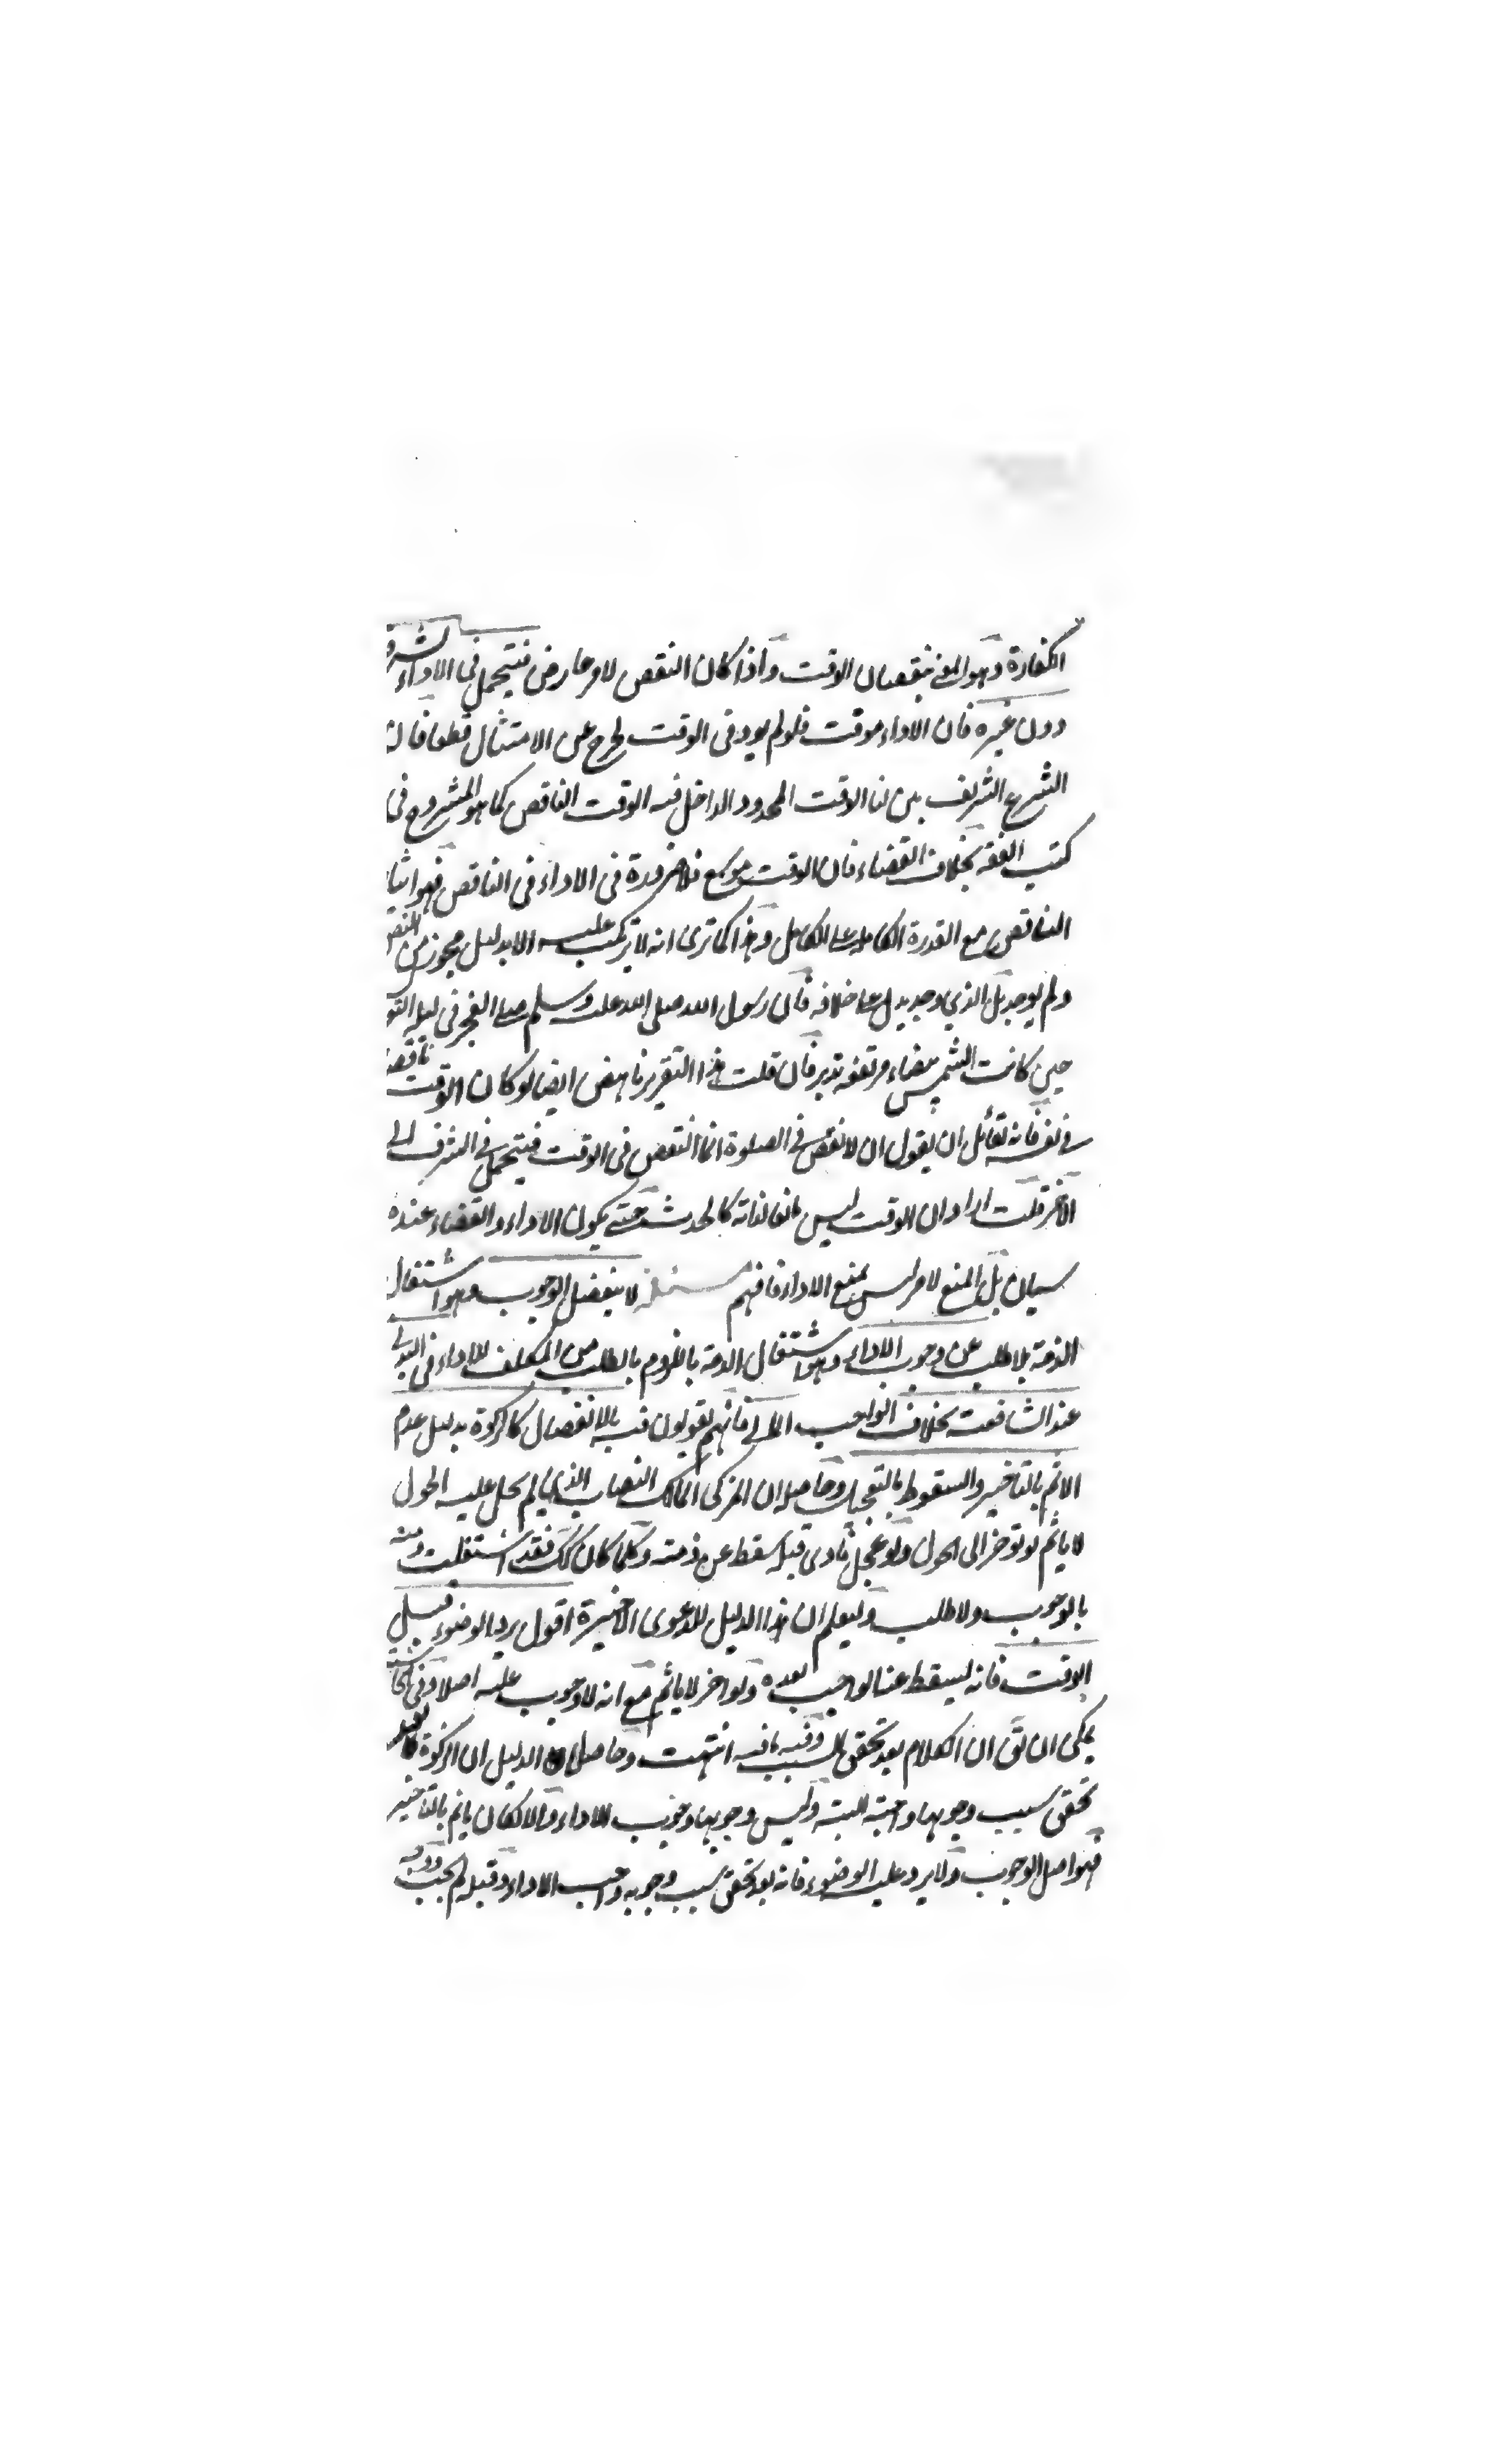 الكفارة وهو المعنى بنقصان الوقت واذا كان النقص لامر عارض فيتحمل فى الاداء
دون غيره فان الاداء موقت فلو لم يود فى الوقت لخرج عن الامتثال قطعا فان
الشرع الشريف بين لنا الوقت المحدود الداخل فيه الوقت الناقص كما هو المشروح فى
كتب الفقه بخلاف القضاء فان الوقت موسع فلا ضرورة فى الاداء فى الناقص فهو
الناقص مع القدرة الكاملة على الكامل وهذا كما ترى انه لا يرتكب عليه الا بدليل مجوز من
ولم يوجد بل الذي وجد يدل على خلافه فان رسول الله صلى الله عليه وسلم صلى الفجر فى ليلة
حين كانت الشمس بيضاء مرتفعة تدبر فان قلت هذا التقرير ناهض ايضا لو كان الوقت ناقصا
فى نفسه فانه لقائل ان يقول ان لا نقص فى الصلوة انما النقص فى الوقت فيتحمل فى الشرف الى
الآخر قلت اراد ان الوقت ليس مانعا لذاته كالحدث حتى يكون الاداء والقضاء عنده
سيان بل المنع لامر ليس يمنع الاداء فافهم مسئلة لا ينفصل الوجوب وهو اشتغال
الذمة بلا طلب عن وجوب الاداء وهو اشتغال الذمة باللزوم بالطلب من المكلف للاداء فى البدنى
عند الشافعية بخلاف الواجب المالى فانهم يقولون فيه بالانفصال كالزكوة بدليل عدم
الاثم بالتاخير والسقوط بالتعجيل وحاصله ان المزكى المالك النصاب الذي لم يحل عليه الحول
لا ياثم لو توخر الى الحول ولو عجل فادى قبله سقط عن ذمته وكلما كان كك فقد اشتغلت ذمته
بالوجوب ولا طلب وليعلم ان هذا الدليل للدعوى الاخيرة اقول يرد الوضوء قبل
الوقت فانه يسقط عنه الواجب بعده ولو اخر لا ياثم مع انه لا وجوب عليه اصلا وفى الحاشية
يمكن ان يق ان الكلام بعد تحقق السبب وفيه ما فيه انتهت وحاصل الدليل ان الزكوة بعد
تحقق سبب وجوبها واجبة البتة وليس وجوبها وجوب الاداء والا لكان ياثم بالتاخير
فهو اصل الوجوب ولا يرد عليه الوضوء فانه بعد تحقق سبب وجوبه واجب الاداء وقبله لم يجب